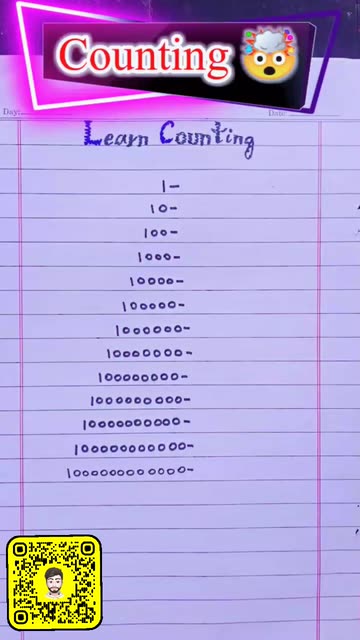 Counting 🤯
Day: Date:
Learn Counting
1-
10-
100-
1000-
10000-
100000-
1000000-
10000000-
100000000-
1000000000-
10000000000-
100000000000-
1000000000000-